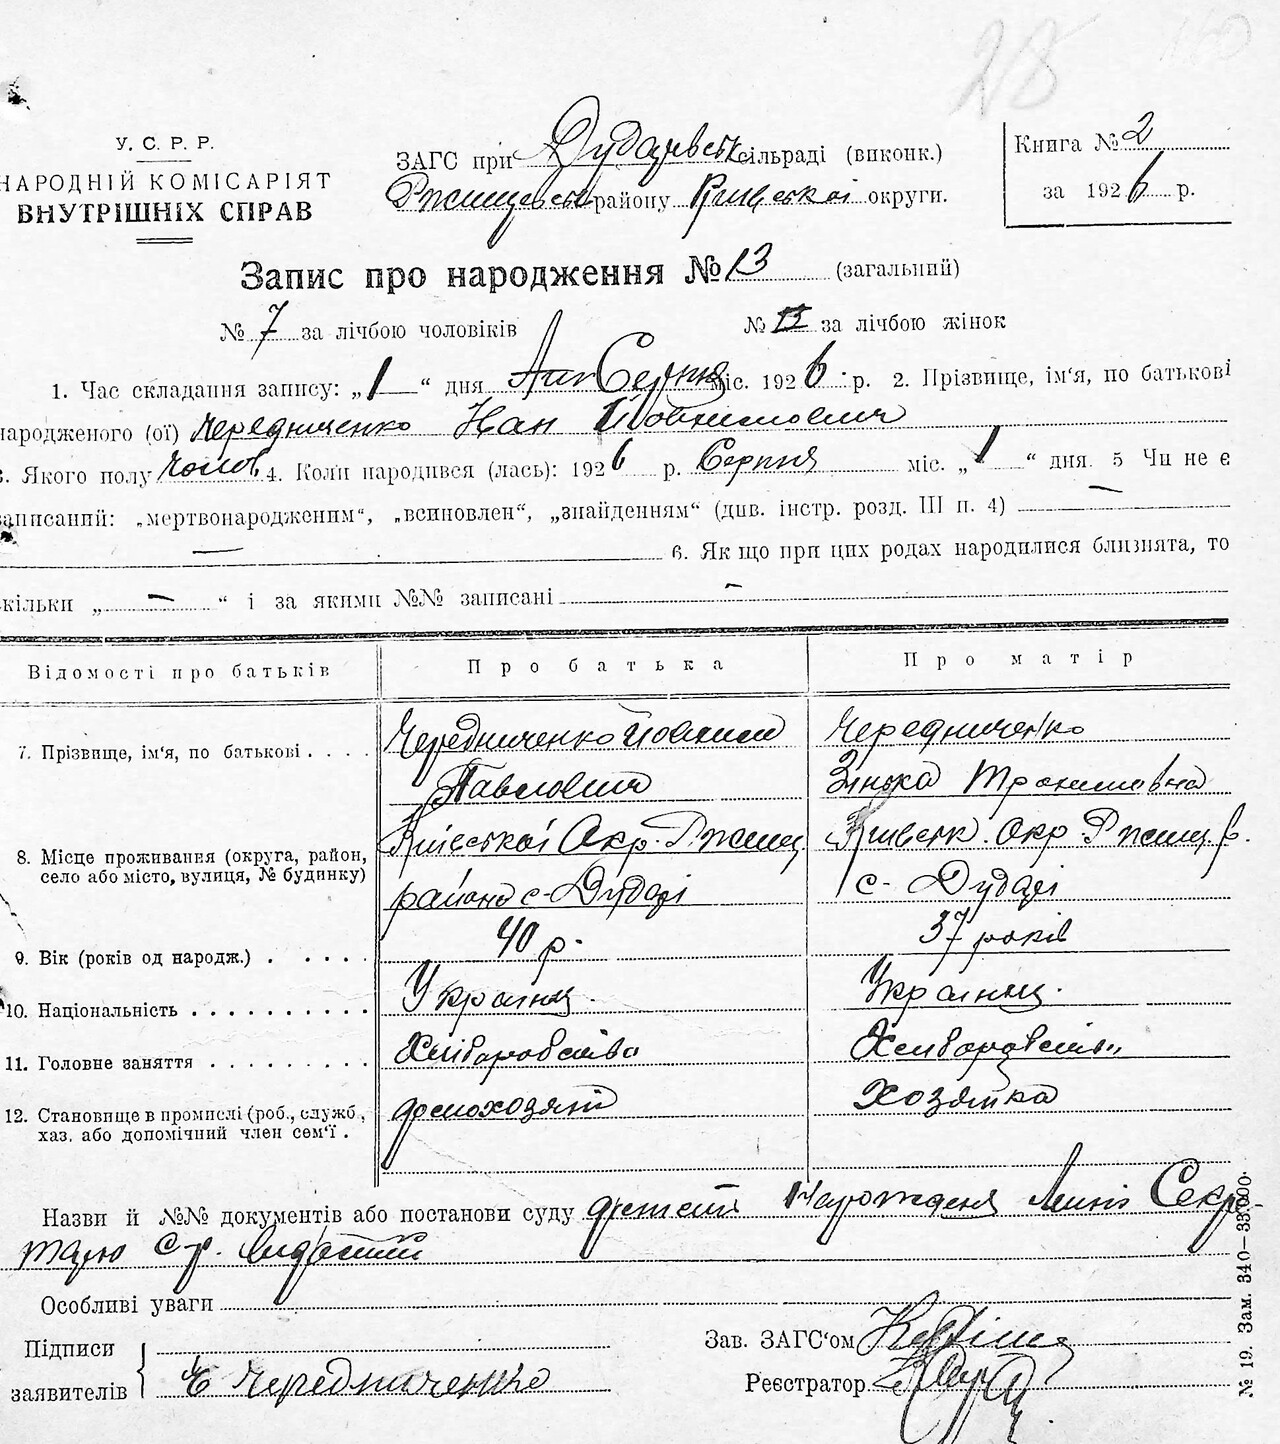 28
У. С. Р. Р.
НАРОДНІЙ КОМІСАРІЯТ
ВНУТРІШНІХ СПРАВ
ЗАГС при Дударівськ сільраді (виконк.)
Ржищевськ району Київської округи.
Книга № 2
за 1926 р.
Запис про народження № 13 (загальний)
№ 7 за лічбою чоловіків
№ за лічбою жінок
1. Час складання запису: „1“ дня Серпня міс. 1926 р. 2. Прізвище, ім'я, по батькові
народженого (ої) Чередниченко Иван Йовхимович
3. Якого полу чолов 4. Коли народився (лась): 1926 р. Серпня міс. „1“ дня. 5 Чи не є
записаний: „мертвонародженим“, „всиновлен“, „знайденням“ (див. інстр. розд. III п. 4) —
— 6. Як що при цих родах народилися близнята, то
скільки „ — “ і за якими №№ записані —
Відомості про батьків
Про батька
Про матір
7. Прізвище, ім'я, по батькові . . . .
Чередниченко Йовхим
Павлович
Чередниченко
Зінька Трохимовна
8. Місце проживання (округа, район,
село або місто, вулиця, № будинку)
Київської Окр. Ржищ
району с. Дударі
Київськ. Окр Ржищ. р.
с. Дударі
9. Вік (років од народж.) . . . . .
40 р.
37 років
10. Національність . . . . . . . . . .
Українец.
Українец.
11. Головне заняття . . . . . . . . .
Хліборобство
Хліборобство
12. Становище в промислі (роб., служб.,
хаз. або допомічний член сем'ї .
домохозяїн
Хозяйка
Назви й №№ документів або постанови суду Секре
тарю
Особливі уваги
Підписи
заявителів
Чередниченко
Зав. ЗАГС'ом
Реєстратор
№ 19. Зам. 340—33.000.